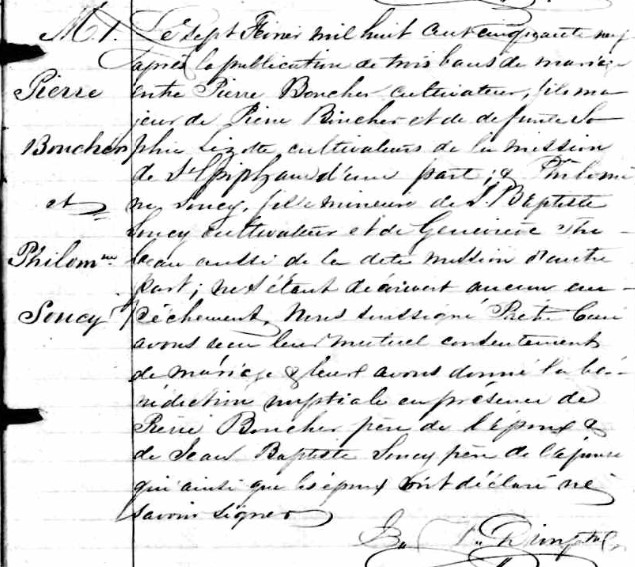 M 1.
Pierre
Boucher
et
Philomne
Soucy
Le sept Fevrier mil huit cent cinquante neuf
après la publication de trois bans de mariage
entre Pierre Boucher cultivateur, fils ma
jeur de Pierre Boucher et de defunte So
phie Lizotte cultivateurs de la mission
de St Epiphane d'une part; & Philomè
ne Soucy, fille mineure de J. Baptiste
Soucy cultivateur et de Geneviève
beau aussi de la dite mission d'autre
part; ne s'étant découvert aucun em-
pêchement, Nous soussigné Prêtre Curé
avons reçu leur mutuel consentement
de mariage & leur avons donné la bé-
nédiction nuptiale en présence de
Pierre Boucher père de l'époux &
de Jean Baptiste Soucy père de l'épouse
qui ainsi que les époux ont déclaré ne
savoir signer